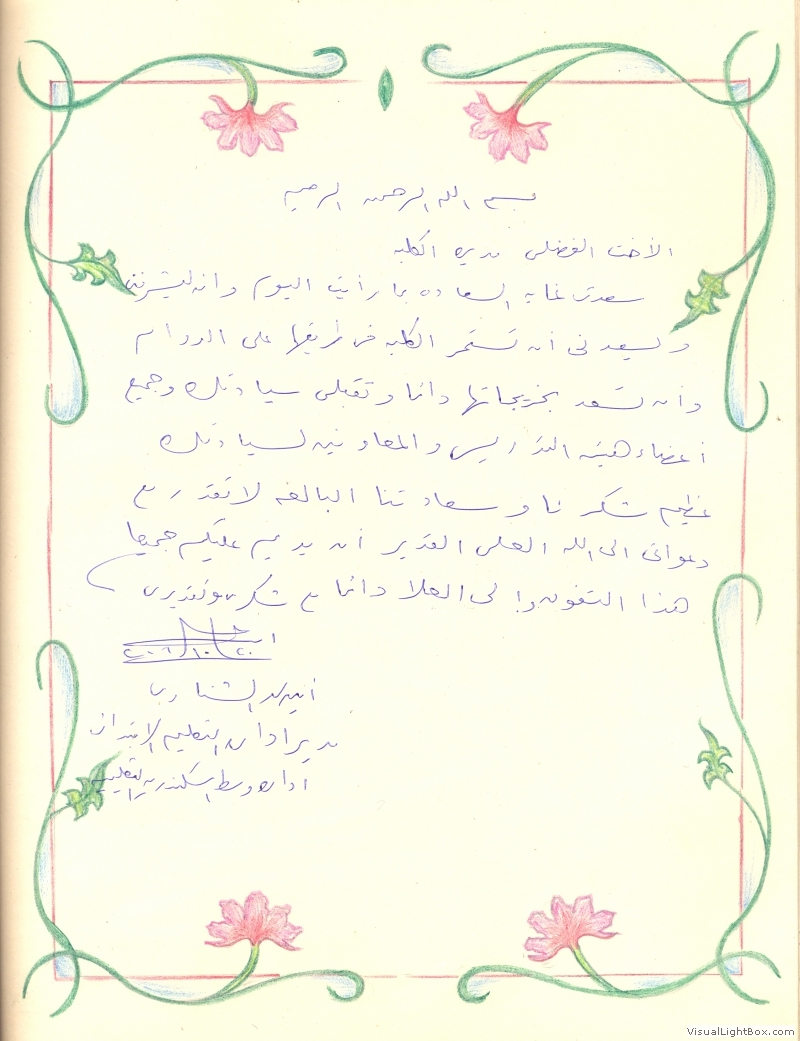 بسم الله الرحمن الرحيم
الأخت الفضلى مديرة الكلية
سعدت غاية السعادة بما رأيت اليوم وانه ليشرفنى
ويسعدنى أن تستمر الكلية فى طريقها على الدوام
وأن تسعد بخريجاتها دائما وتقبلى سيادتك وجميع
أعضاء هيئة التدريس والمعاونين لسيادتك
عظيم شكرنا وسعادتنا البالغة لا تقدر مع
دعواتى الى الله العلى القدير أن يديم عليكم جميعا
هذا التفوق والى العلا دائما مع شكرى وتقديرى
الشناوى
مدير ادارة التعليم الابتدائى
ادارة وسط اسكندرية التعليمية
VisualLightBox.com